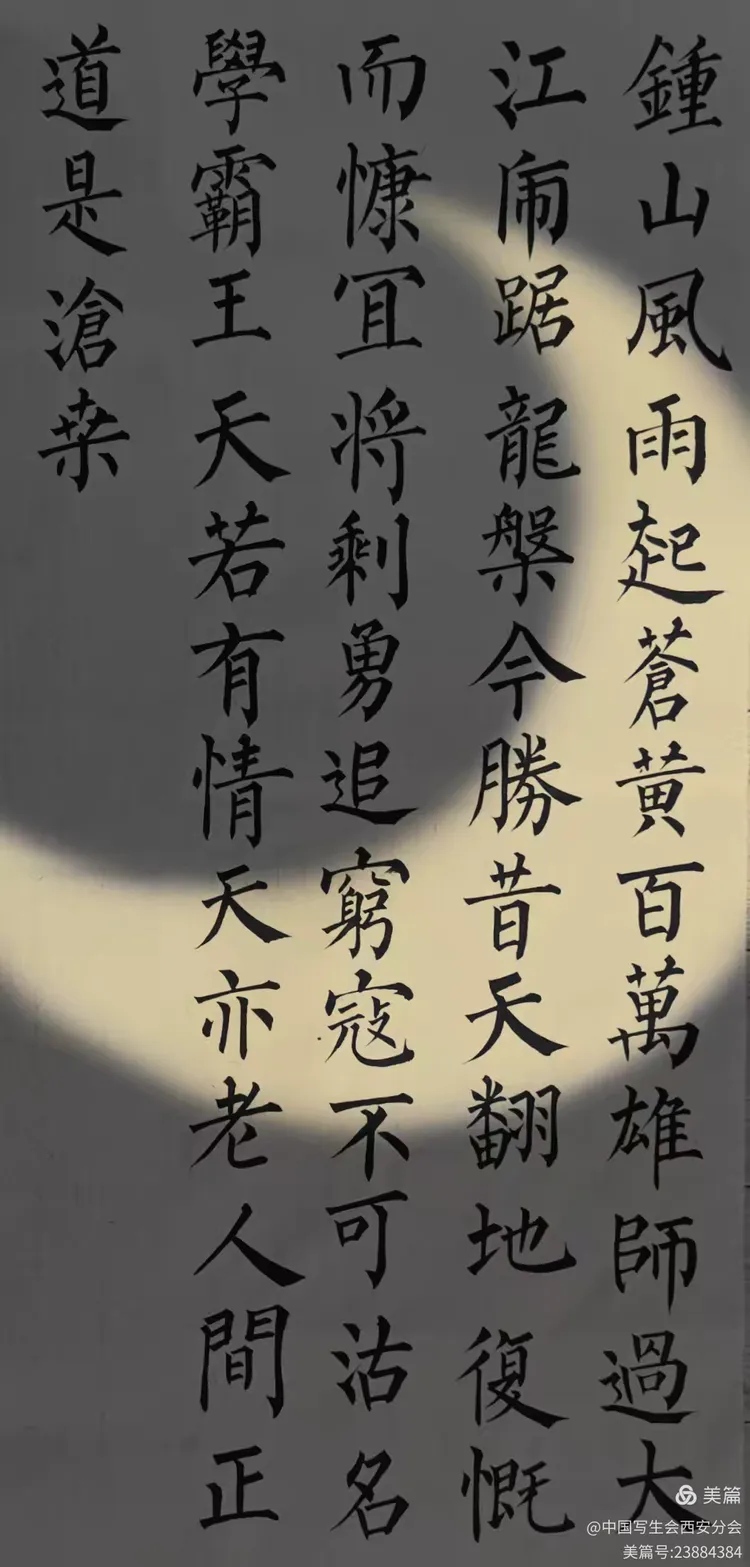 鍾山風雨起蒼黄百萬雄師過大
江乕踞龍槃今勝昔天翻地復慨
而慷冝将剩勇追窮寇不可沽名
學霸王天若有情天亦老人間正
道是滄桒
美篇
@中国写生会西安分会
美篇号:23884384